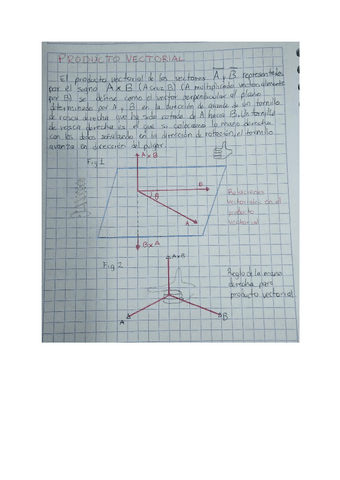 PRODUCTO VECTORIAL
El producto vectorial de los vectores A y B representados
por el signo A x B (A cruz B) (A multiplicando vectorialmente
por B) se define como el vector perpendicular al plano
determinado por A y B en la dirección de avance de un tornillo
de rosca derecha que ha sido rotado de A hacia B. Un tornillo
de rosca derecha es el que si colocamos la mano derecha
con los dedos señalando en la dirección de rotación, el tornillo
avanza en dirección del pulgar.
Fig 1
A x B
B
θ
A
Relaciones
vectoriales en el
producto
vectorial
B x A
Fig 2
A x B
Regla de la mano
derecha para
producto vectorial.
A
B